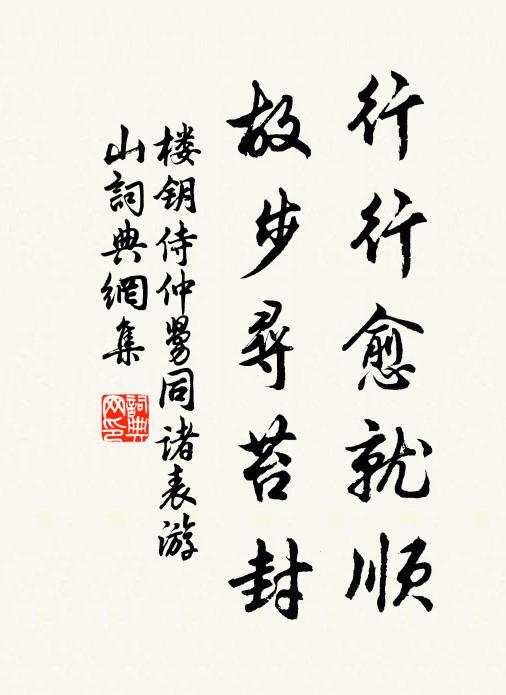 行行愈就顺
故步寻苔封
楼钥侍仲舅同诸表游
山詞典網集
詞典网印